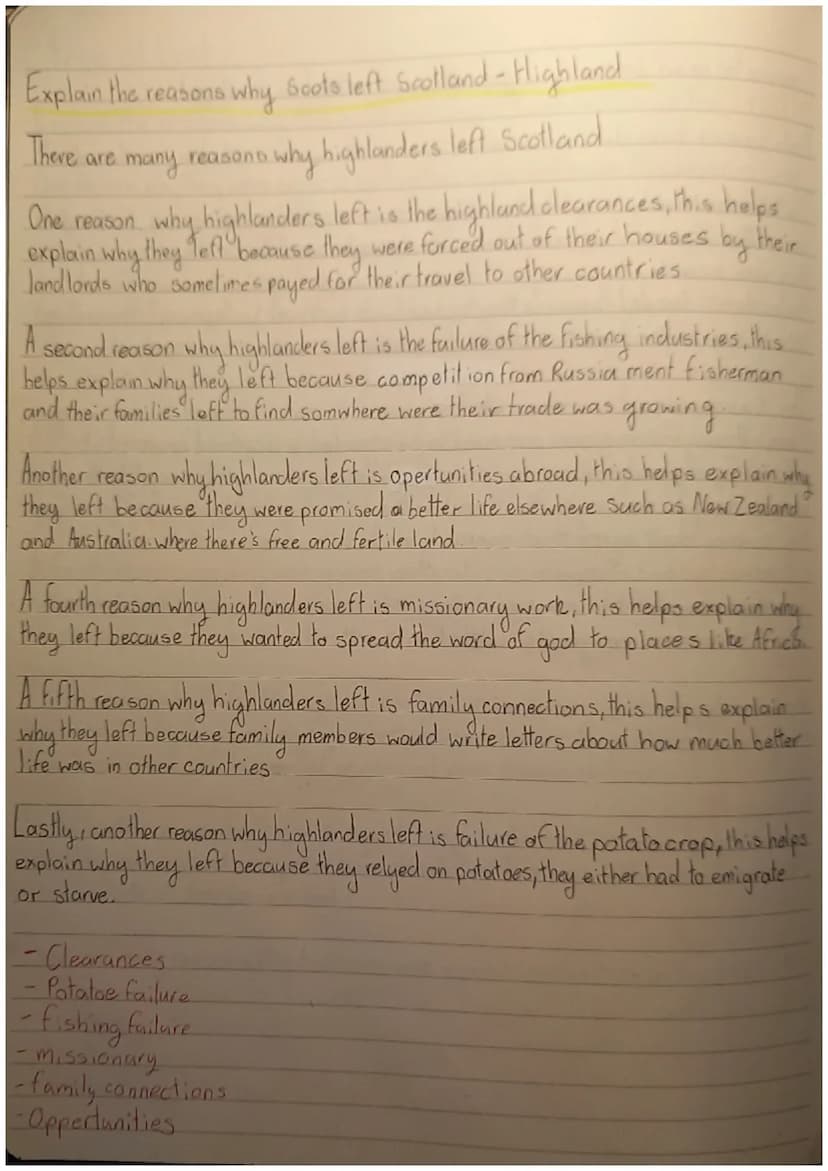 Explain the reasons why Scots left Scotland - Highland
There are many reasons why highlanders left Scotland
One reason why highlanders left is the highland clearances, this helps
explain why they left because they were forced out of their houses by their
landlords who sometimes payed for their travel to other countries
A second reason why highlanders left is the failure of the fishing industries, this
helps explain why they left because competition from Russia ment fisherman
and their families left to find somwhere were their trade was growing.
Another reason why highlanders left is opertunities abroad, this helps explain why
they left because they were promised a better life elsewhere such as New Zealand
and Australia. where there's free and fertile land
A fourth reason why highlanders left is missionary work, this helps explain why
they left because they wanted to spread the word of god to places like Africa.
A fifth reason why highlanders left is family connections, this helps explain
why they left because family members would write letters about how much better
life was in other countries
Lastly, another reason why highlanders left is failure of the potato crop, this helps
explain why they left because they relyed on potatoes, they either had to emigrate
or starve.
- Clearances
- Potatoe failure
- fishing failure
- missionary
- family connections
- Oppertunities